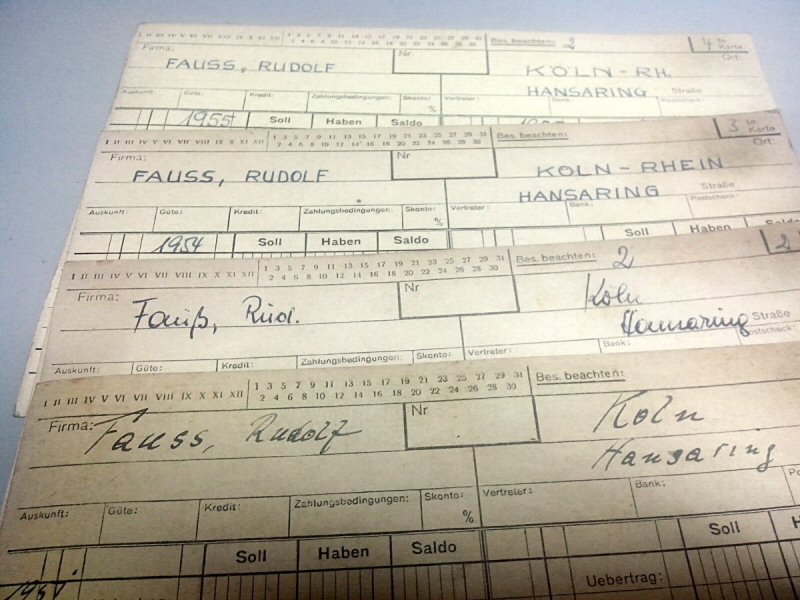 I II III IV V VI VII VIII IX X XI XII 1 3 5 7 9 11 13 15 17 19 21 23 25 27 29 31 Bes. beachten: 2 4 te Karte
2 4 6 8 10 12 14 16 18 20 22 24 26 28 30
Firma: Nr Ort:
FAUSS, RUDOLF KÖLN-RH.
HANSARING Straße
Auskunft: Güte: Kredit: Zahlungsbedingungen: Skonto: Vertreter: Bank: Postscheck:
%
1955 Soll Haben Saldo
I II III IV V VI VII VIII IX X XI XII 1 3 5 7 9 11 13 15 17 19 21 23 25 27 29 31 Bes. beachten: 3 te Karte
2 4 6 8 10 12 14 16 18 20 22 24 26 28 30
Firma: Nr Ort:
FAUSS, RUDOLF KÖLN-RHEIN
HANSARING Straße
Auskunft: Güte: Kredit: Zahlungsbedingungen: Skonto: Vertreter: Bank: Postscheck:
%
1954 Soll Haben Saldo Soll Haben
I II III IV V VI VII VIII IX X XI XII 1 3 5 7 9 11 13 15 17 19 21 23 25 27 29 31 Bes. beachten: 2 2
2 4 6 8 10 12 14 16 18 20 22 24 26 28 30
Firma: Nr
Fauß, Rud. Köln
Hansaring Straße
Auskunft: Güte: Kredit: Zahlungsbedingungen: Skonto: Vertreter: Bank: Postscheck:
I II III IV V VI VII VIII IX X XI XII 1 3 5 7 9 11 13 15 17 19 21 23 25 27 29 31 Bes. beachten:
2 4 6 8 10 12 14 16 18 20 22 24 26 28 30
Firma: Nr
Fauss, Rudolf Köln
Hansaring
Auskunft: Güte: Kredit: Zahlungsbedingungen: Skonto: Vertreter: Bank: Po
%
Soll Haben Saldo Soll H
Uebertrag: